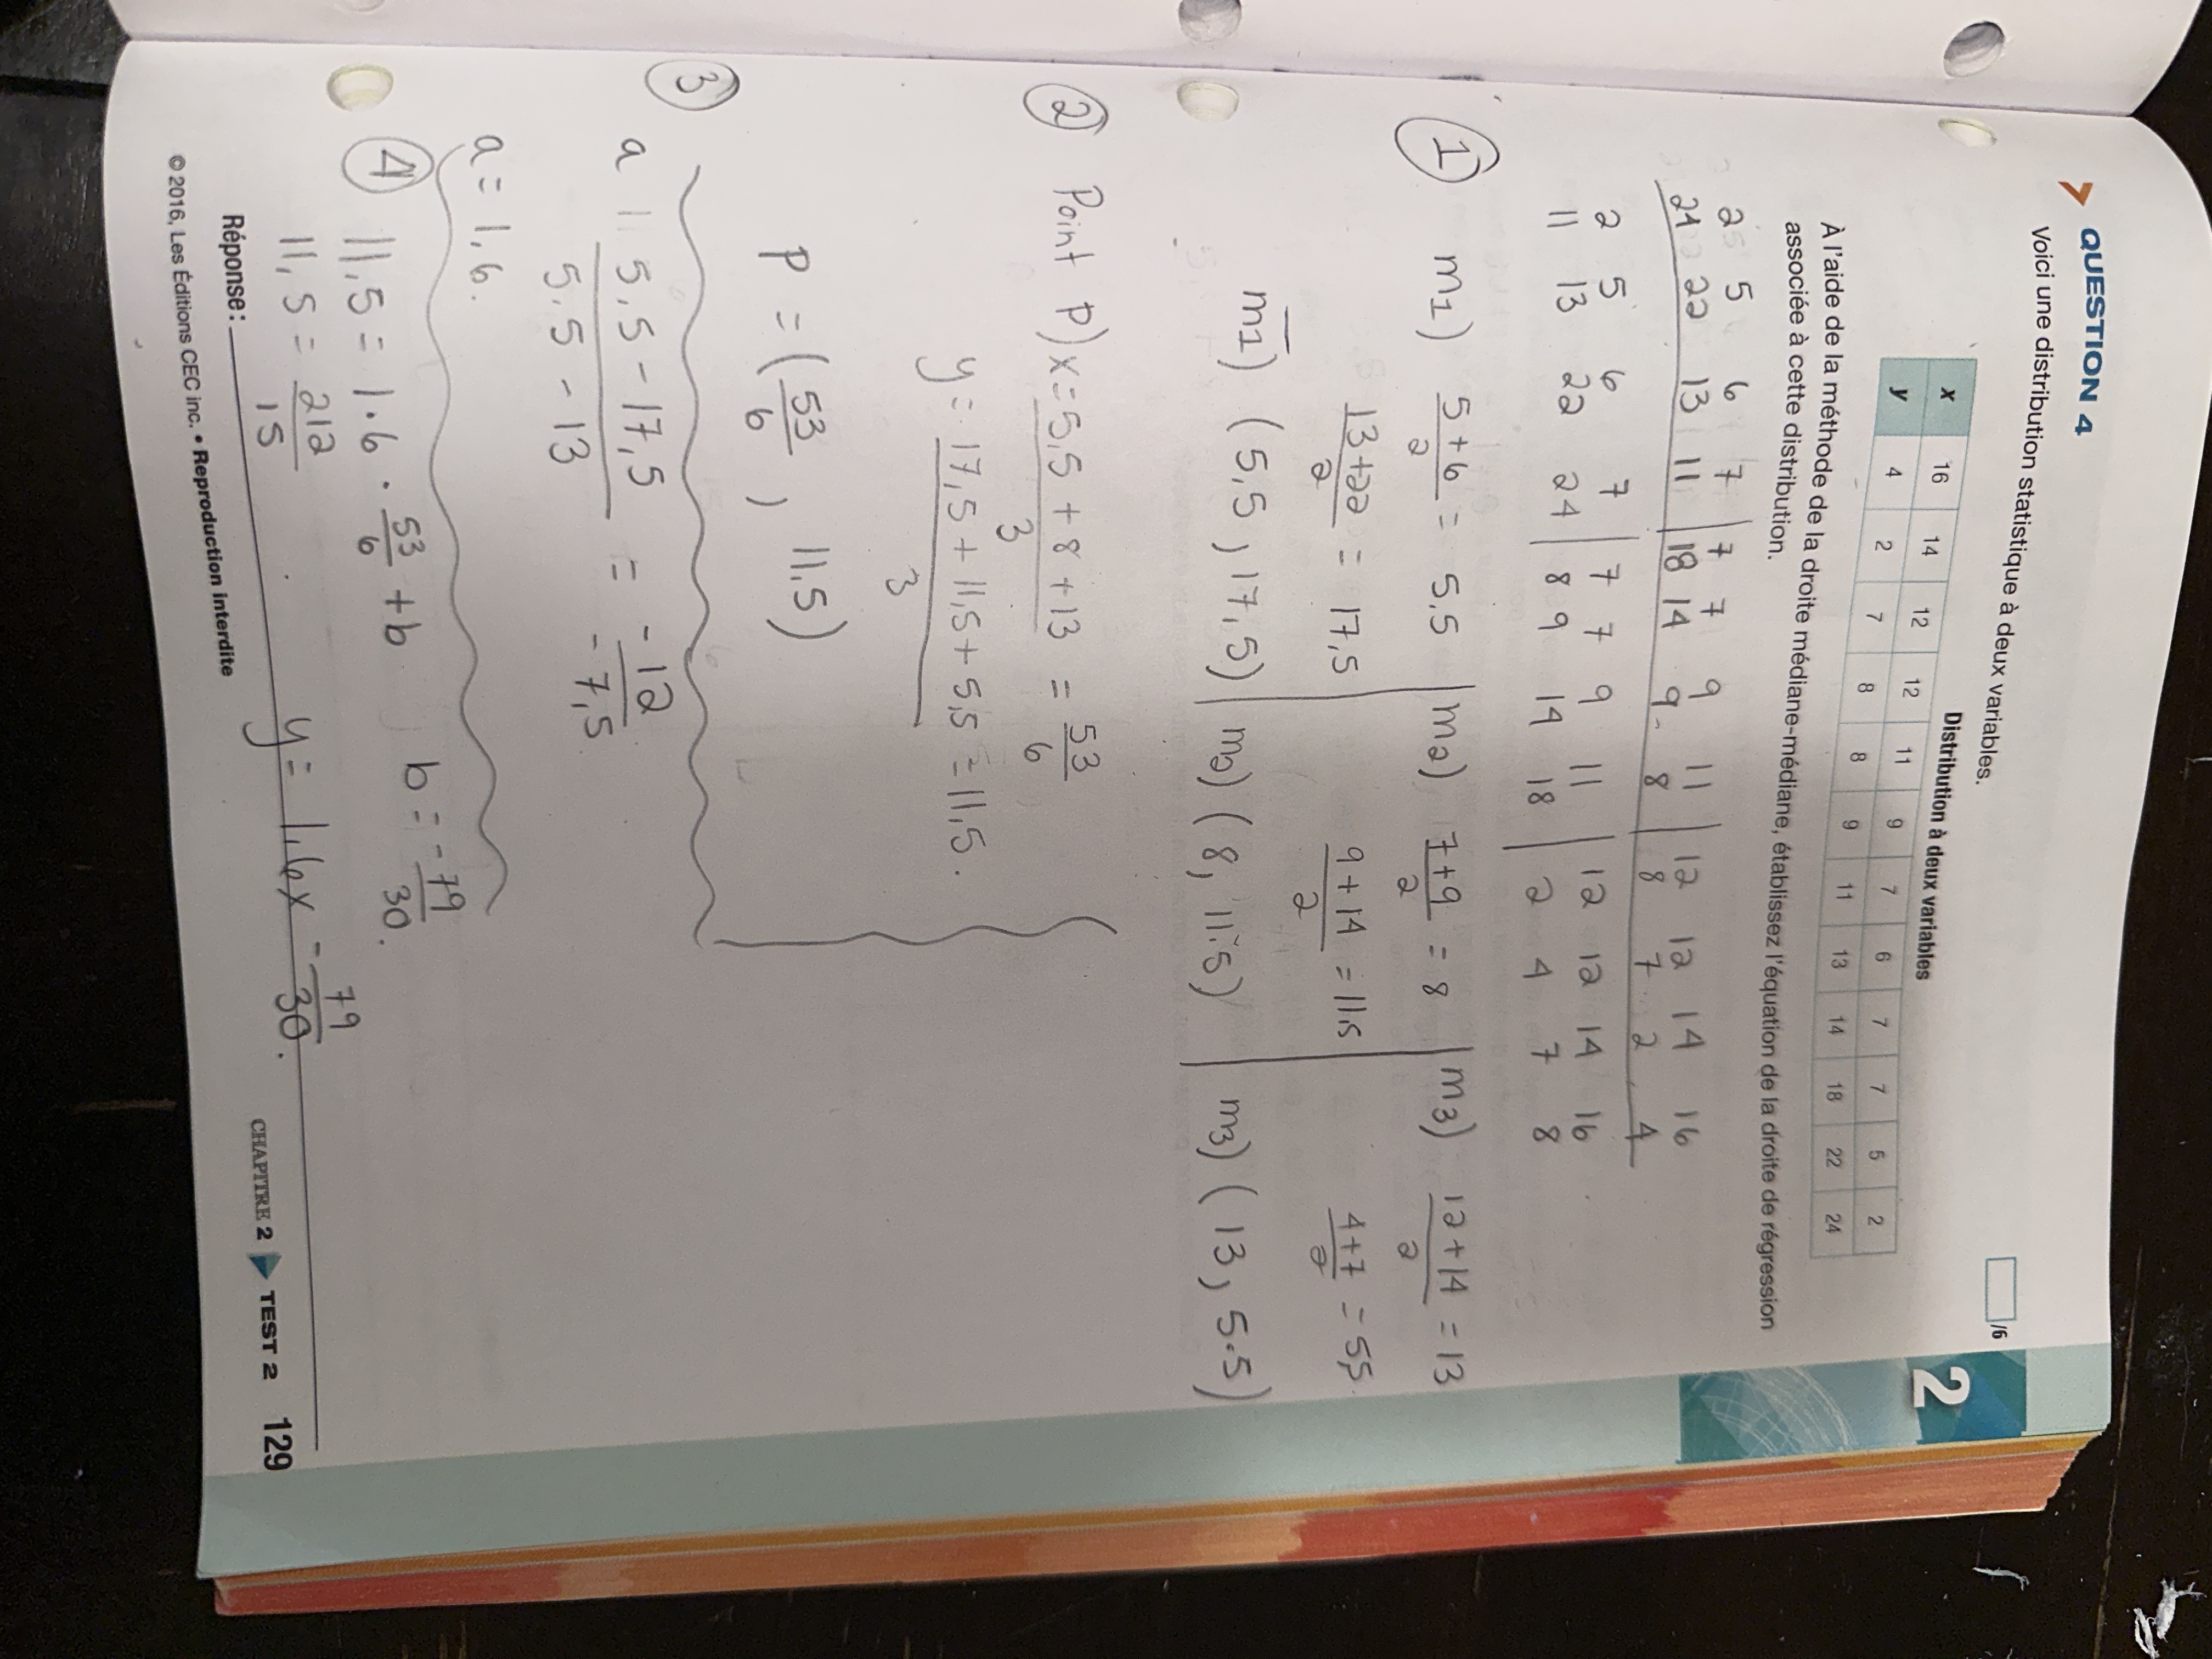 QUESTION 4
Voici une distribution statistique à deux variables.
/6
2
Distribution à deux variables
x 16 14 12 12 11 9 7 6 7 7 5 2
y 4 2 7 8 8 9 11 13 14 18 22 24
À l'aide de la méthode de la droite médiane-médiane, établissez l'équation de la droite de régression
associée à cette distribution.
2 5 6 7 | 7 7 9 11 | 12 12 14 16
24 22 13 11 | 18 14 9 8 8 7 2 4
2 5 6 7 | 7 7 9 11 | 12 12 14 16
11 13 22 24 | 8 9 14 18 | 2 4 7 8
1 m1) 5+6/2 = 5,5 | m2) 7+9/2 = 8 | m3) 12+14/2 = 13
13+22/2 = 17,5 9+14/2 = 11,5 4+7/2 = 5,5
m1) (5,5 , 17,5) | m2) (8, 11.5) | m3) (13, 5.5)
2 Point P) x = 5,5 + 8 + 13/3 = 53/6
y = 17,5 + 11,5 + 5,5/3 = 11,5.
P = (53/6 , 11.5)
3 a 5,5 - 17,5/5,5 - 13 = -12/-7,5
a = 1,6.
4 11,5 = 1.6 · 53/6 + b b = -79/30.
11,5 = 212/15
y = 1,6x - 79/30.
Réponse:
© 2016, Les Éditions CEC inc. • Reproduction interdite
CHAPITRE 2 TEST 2 129